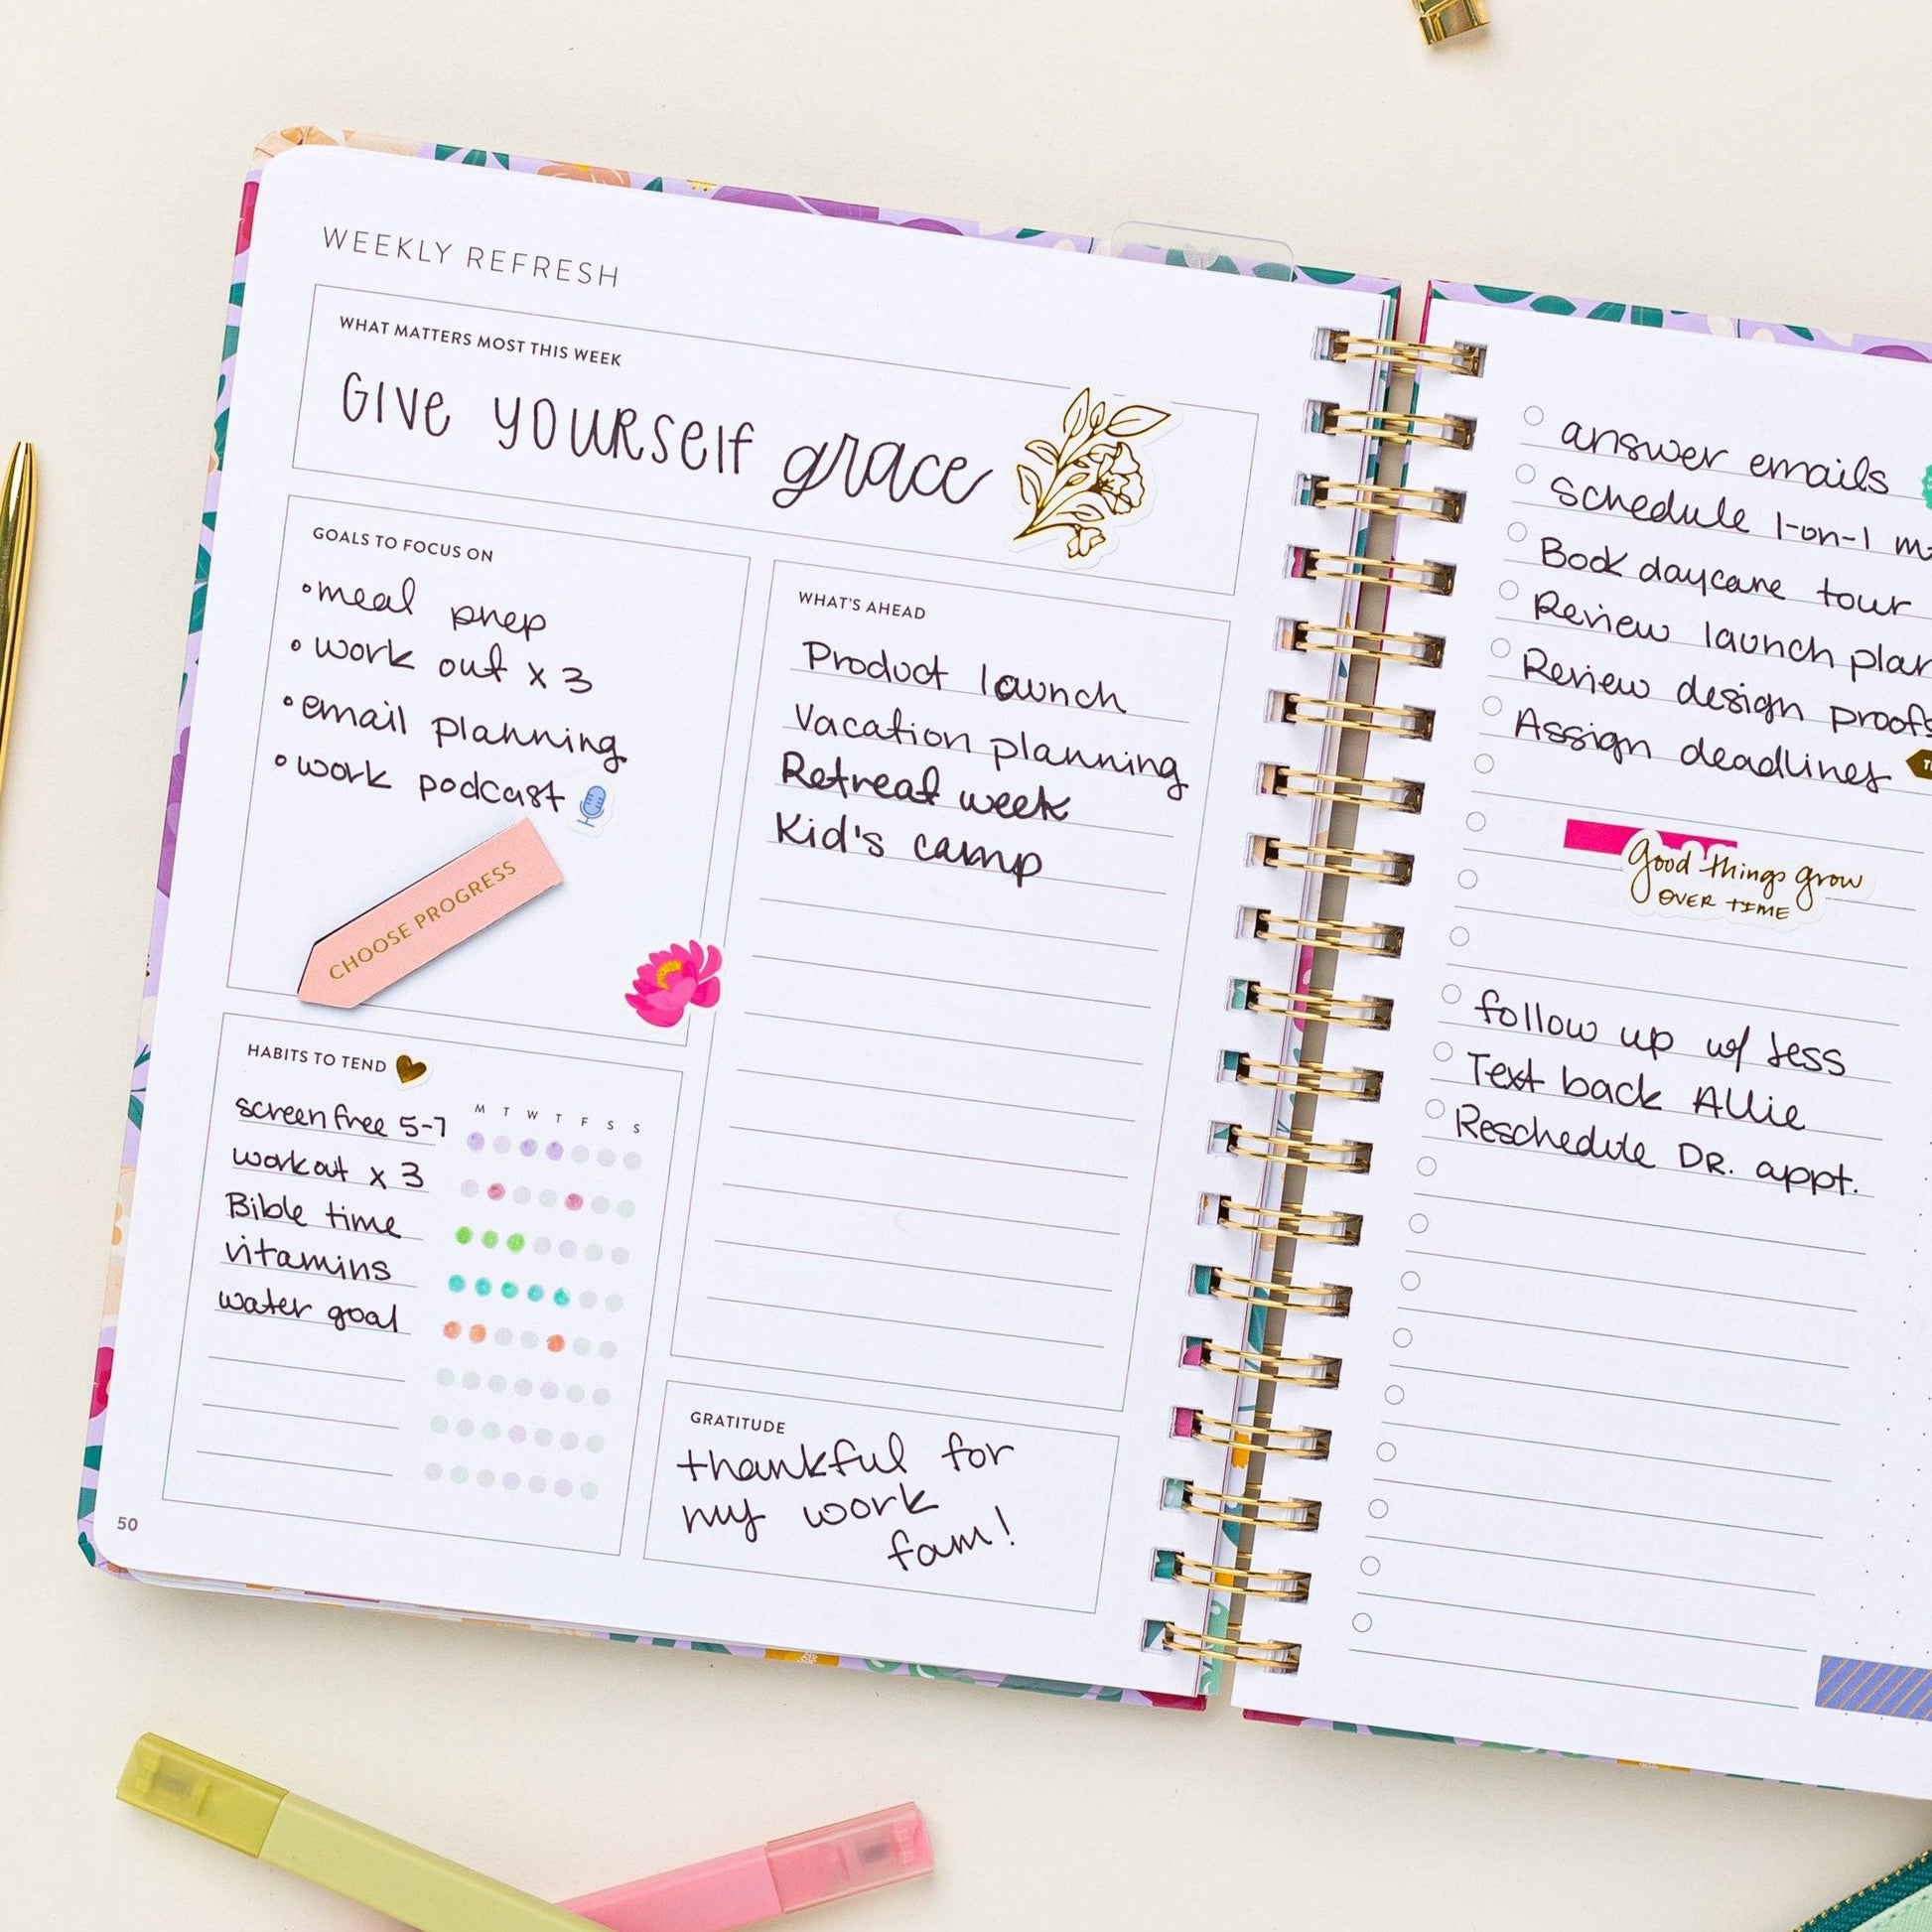 WEEKLY REFRESH
WHAT MATTERS MOST THIS WEEK
GIVE YOURSELF grace
GOALS TO FOCUS ON
•meal prep
•work out x 3
•email planning
•work podcast
CHOOSE PROGRESS
WHAT'S AHEAD
Product launch
Vacation planning
Retreat week
Kid's camp
HABITS TO TEND
M T W T F S S
screen free 5-7
workout x 3
Bible time
vitamins
water goal
GRATITUDE
thankful for
my work
fam!
50
answer emails
schedule 1-on-1
Book daycare tour
Review launch plan
Review design proofs
Assign deadlines
good things grow
OVER TIME
follow up w/ Jess
Text back Allie
Reschedule DR. appt.